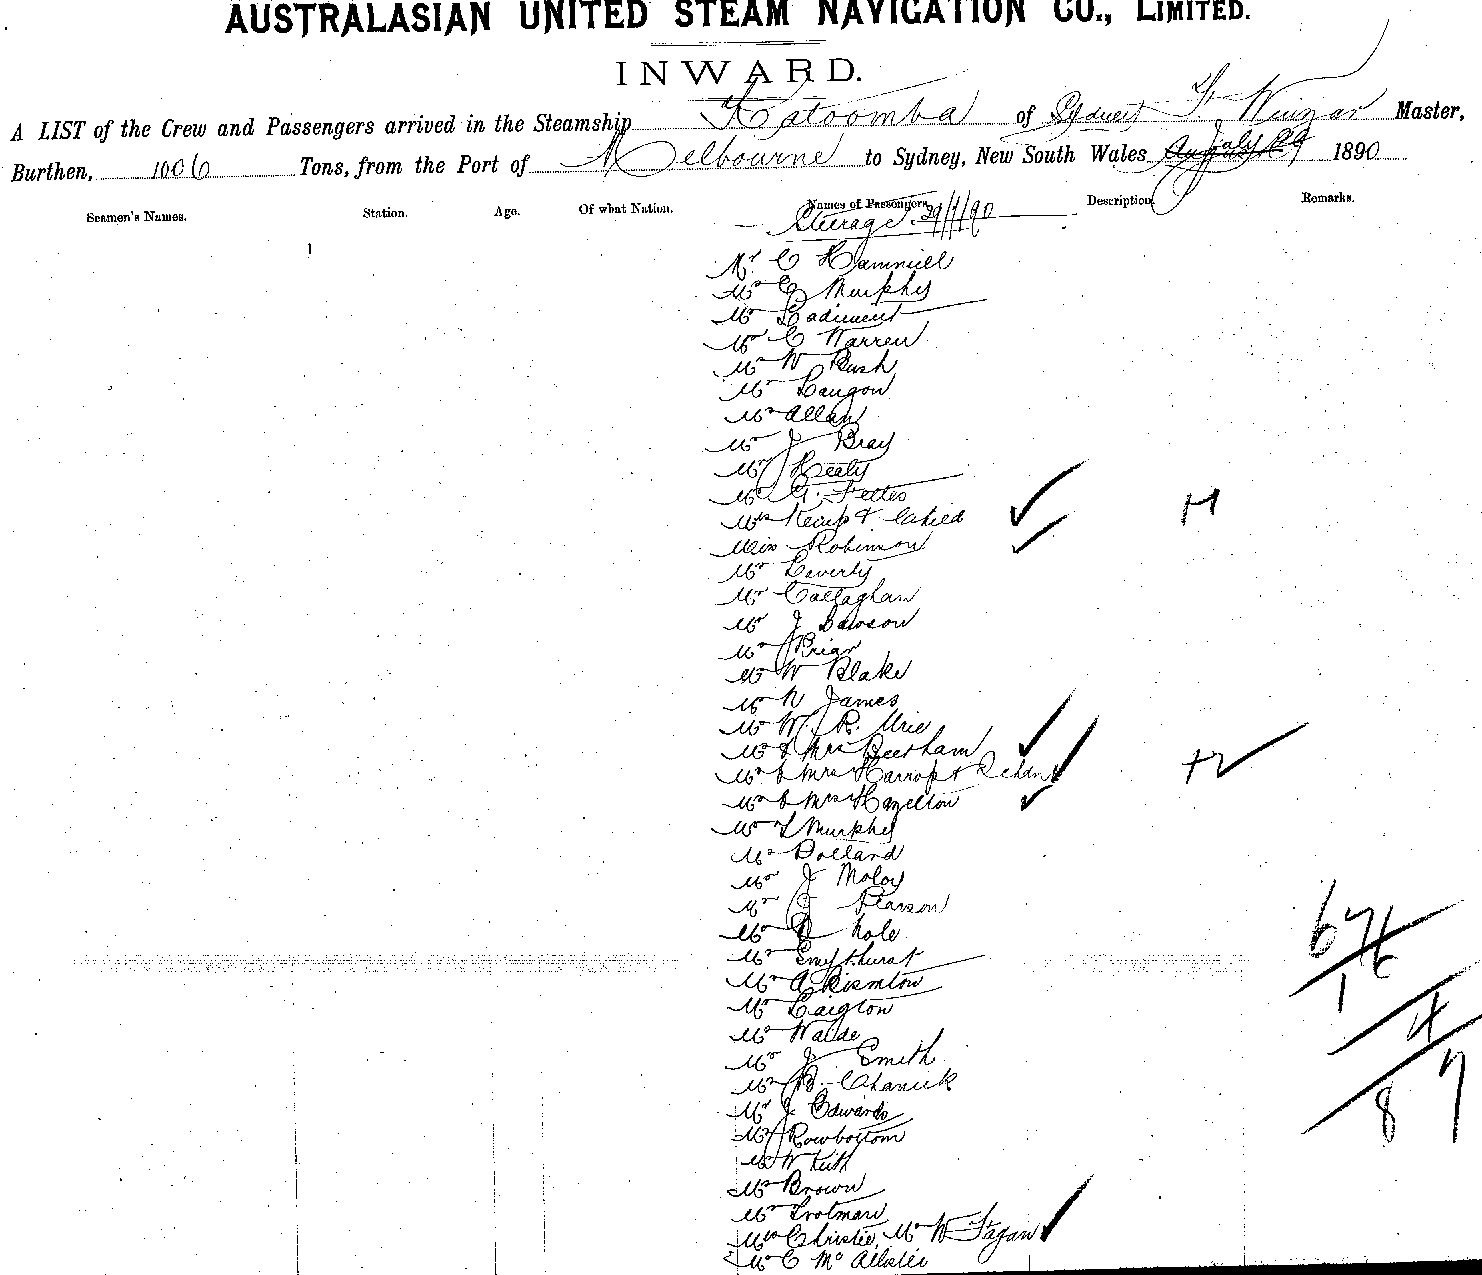 AUSTRALASIAN UNITED STEAM NAVIGATION CO., LIMITED.
INWARD.
A LIST of the Crew and Passengers arrived in the Steamship Katoomba of Sydney Master,
Burthen, 1006 Tons, from the Port of Melbourne to Sydney, New South Wales July 29 1890
Seamen's Names. Station. Age. Of what Nation. Names of Passengers. Description. Remarks.
Steerage. 29/7/90
Mr C Hammill
Mr C Murphy
Mr
Mr C Warren
Mr W Rush
Mr Langon
Mr Allan
Mr J Bray
Mr Healy
Mr G. Fettes
Mrs Kemp & Child
Miss Robinson
Mr Laverty
Mr Callaghan
Mr J Dawson
Mr
Mr W Blake
Mr N James
Mr W. R. Urie
Mr & Mrs
Mr & Mrs Harrop & 2 chdn
Mr & Mrs Hazelton
Mr T Murphy
Mr Dolland
Mr J Moloy
Mr J Pearson
Mr Nole
Mr Smythurst
Mr A
Mr Laigton
Mr Waide
Mr J Smith
Mr B.
Mr J Edwards
Mr Rowbottom
Mr W
Mr Brown
Mr Trotman
Mrs Christie, Mr W Fagan
Mr C Mc